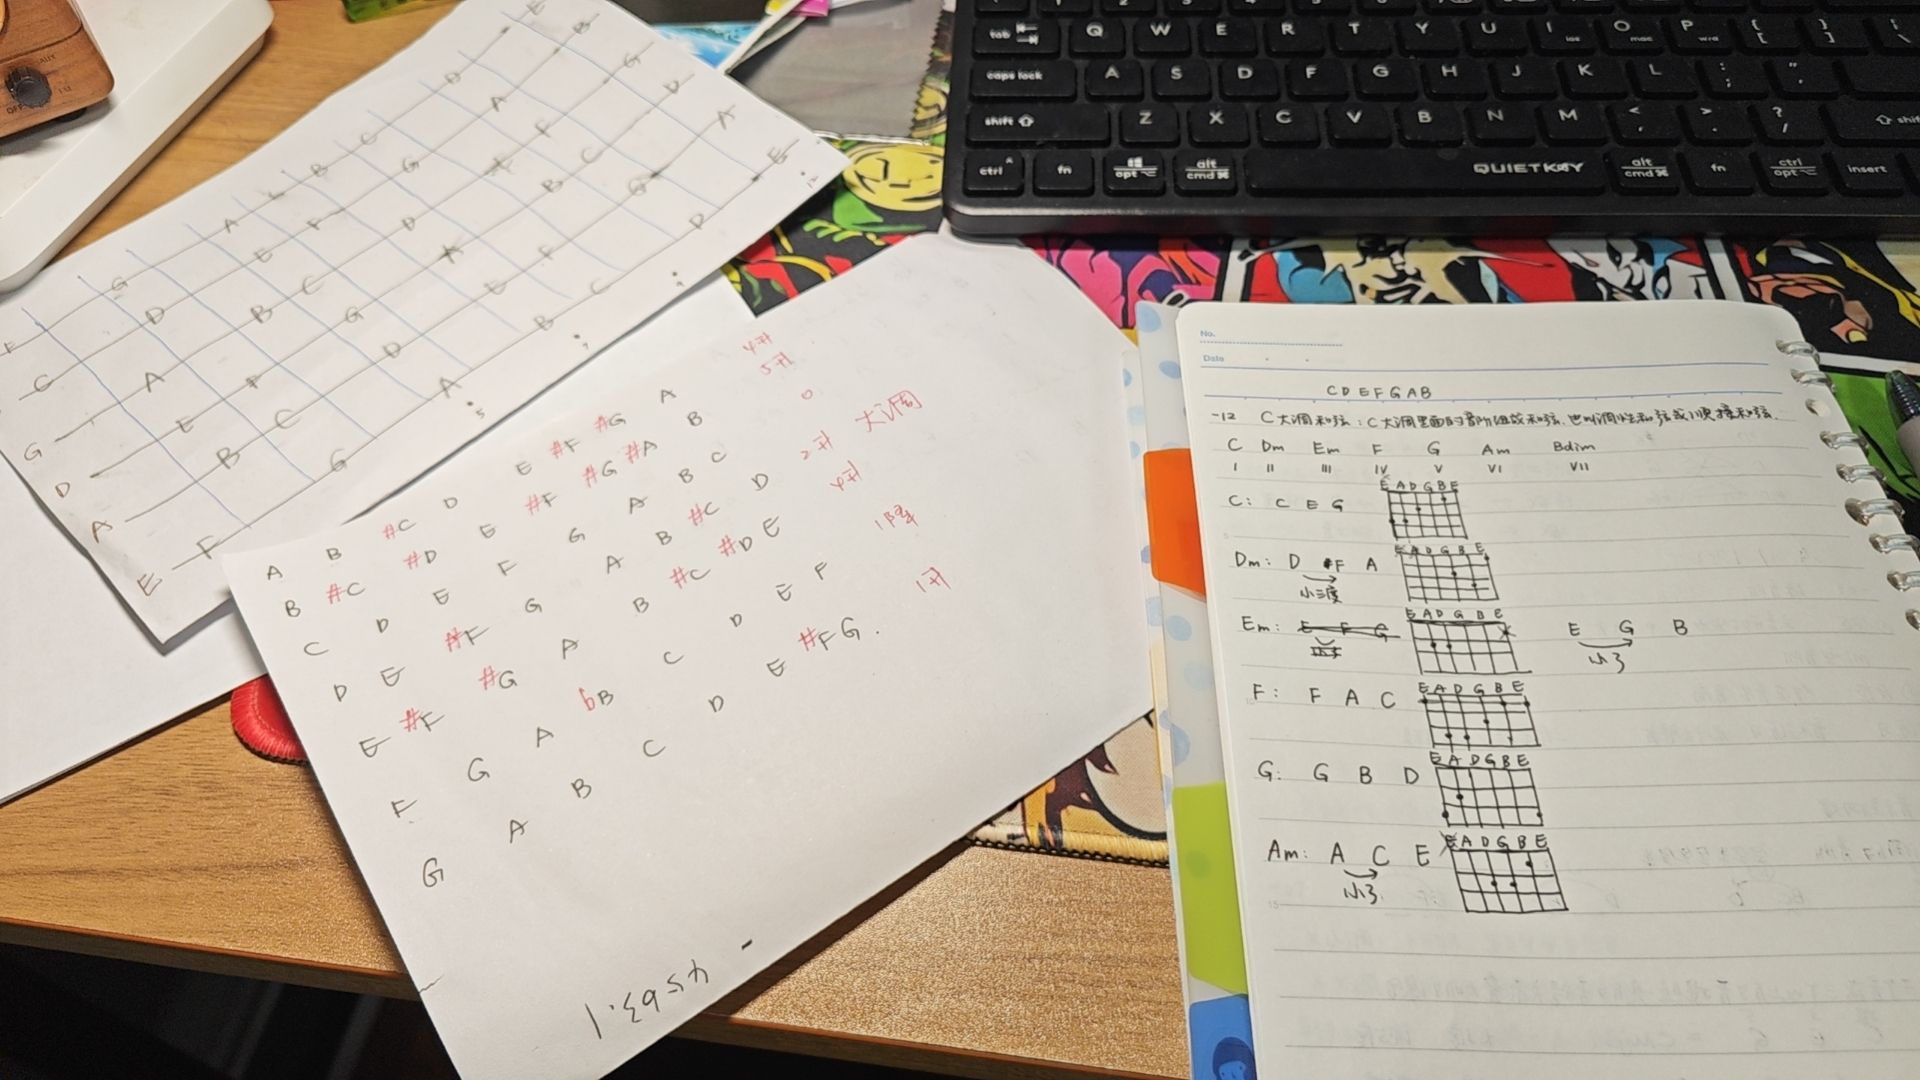 No.
Date
C D E F G A B
-12 C大调和弦:C大调里面的音阶组成和弦,也叫调性和弦或顺接和弦.
C Dm Em F G Am Bdim
I II III IV V VI VII
E A D G B E
C: C E G
E A D G B E
Dm: D F A
小三度
E A D G B E
Em: E F G E G B
小3
E A D G B E
F: F A C
E A D G B E
G: G B D
E A D G B E
Am: A C E
小3
A B #C D E #F #G A 4升
B #C #D E #F #G #A B 5升
C D E F G A B C 0
D E #F G A B #C D 2升 大调
E #F #G A B #C #D E 4升
F G A bB C D E F 1降
G A B C D E #F G. 1升
F G A B C D E
C D E F G A B
G A B C D E F G
D E F G A B C D
A B C D E F G A
E F G A B C D E
tab Q W E R T Y U I O P { [ } ]
caps lock A S D F G H J K L : ;
shift Z X C V B N M < , > . ? / shift
ctrl fn opt alt cmd QUIETKEY alt cmd fn ctrl opt insert
AUX
OFF